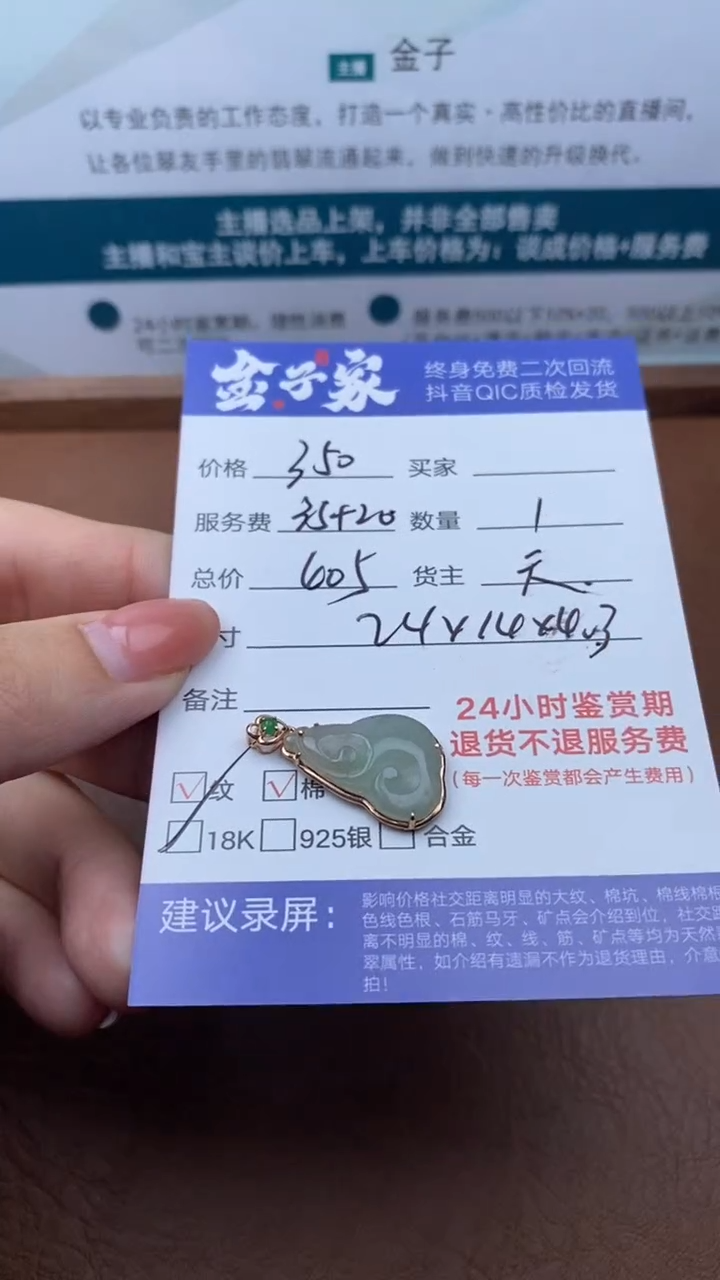 主播 金子
以专业负责的工作态度，打造一个真实·高性价比的直播间，
让各位翠友手里的翡翠流通起来，做到快速的升级换代。
主播选品上架，并非全部售卖
主播和宝主谈价上车，上车价格为：谈成价格+服务费
24小时鉴赏期，理性消费
金子家 终身免费二次回流
抖音QIC质检发货
价格 350 买家
服务费 35+20 数量 1
总价 605 货主 天
寸 24×14×4.3
备注
24小时鉴赏期
退货不退服务费
(每一次鉴赏都会产生费用)
√纹 √棉
18K 925银 合金
建议录屏：
影响价格社交距离明显的大纹、棉坑、棉线棉根
色线色根、石筋马牙、矿点会介绍到位，社交距
离不明显的棉、纹、线、筋、矿点等均为天然
翠属性，如介绍有遗漏不作为退货理由，介意
拍！